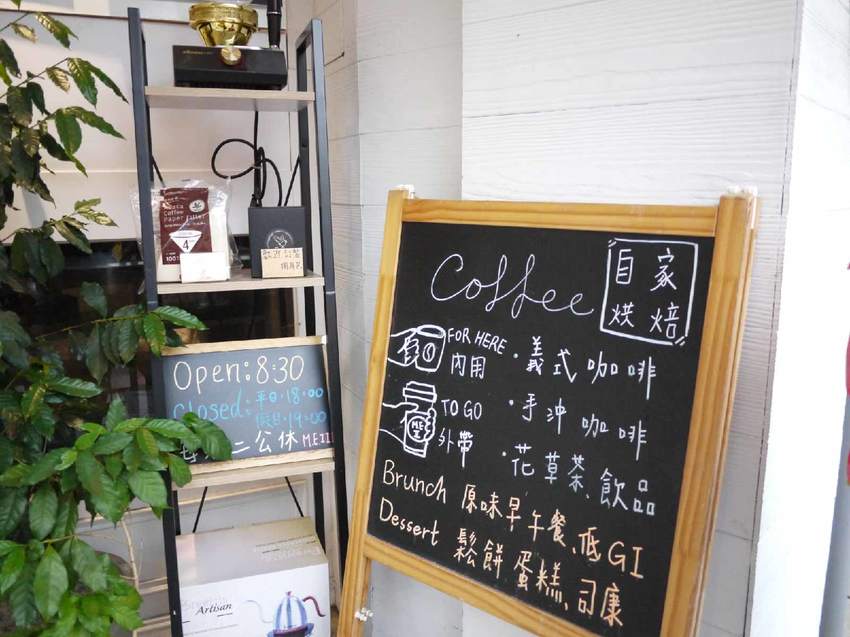 Coffee
Paper Filter
4
歡迎
Open: 8:30
Closed: 平日·18:00
假日·19:00
二公休
Artisan
Coffee
自家
烘焙
FOR HERE
內用
·義式咖啡
TO GO
外帶
·手沖咖啡
·花草茶、飲品
Brunch 原味早午餐、低GI
Dessert 鬆餅 蛋糕、司康